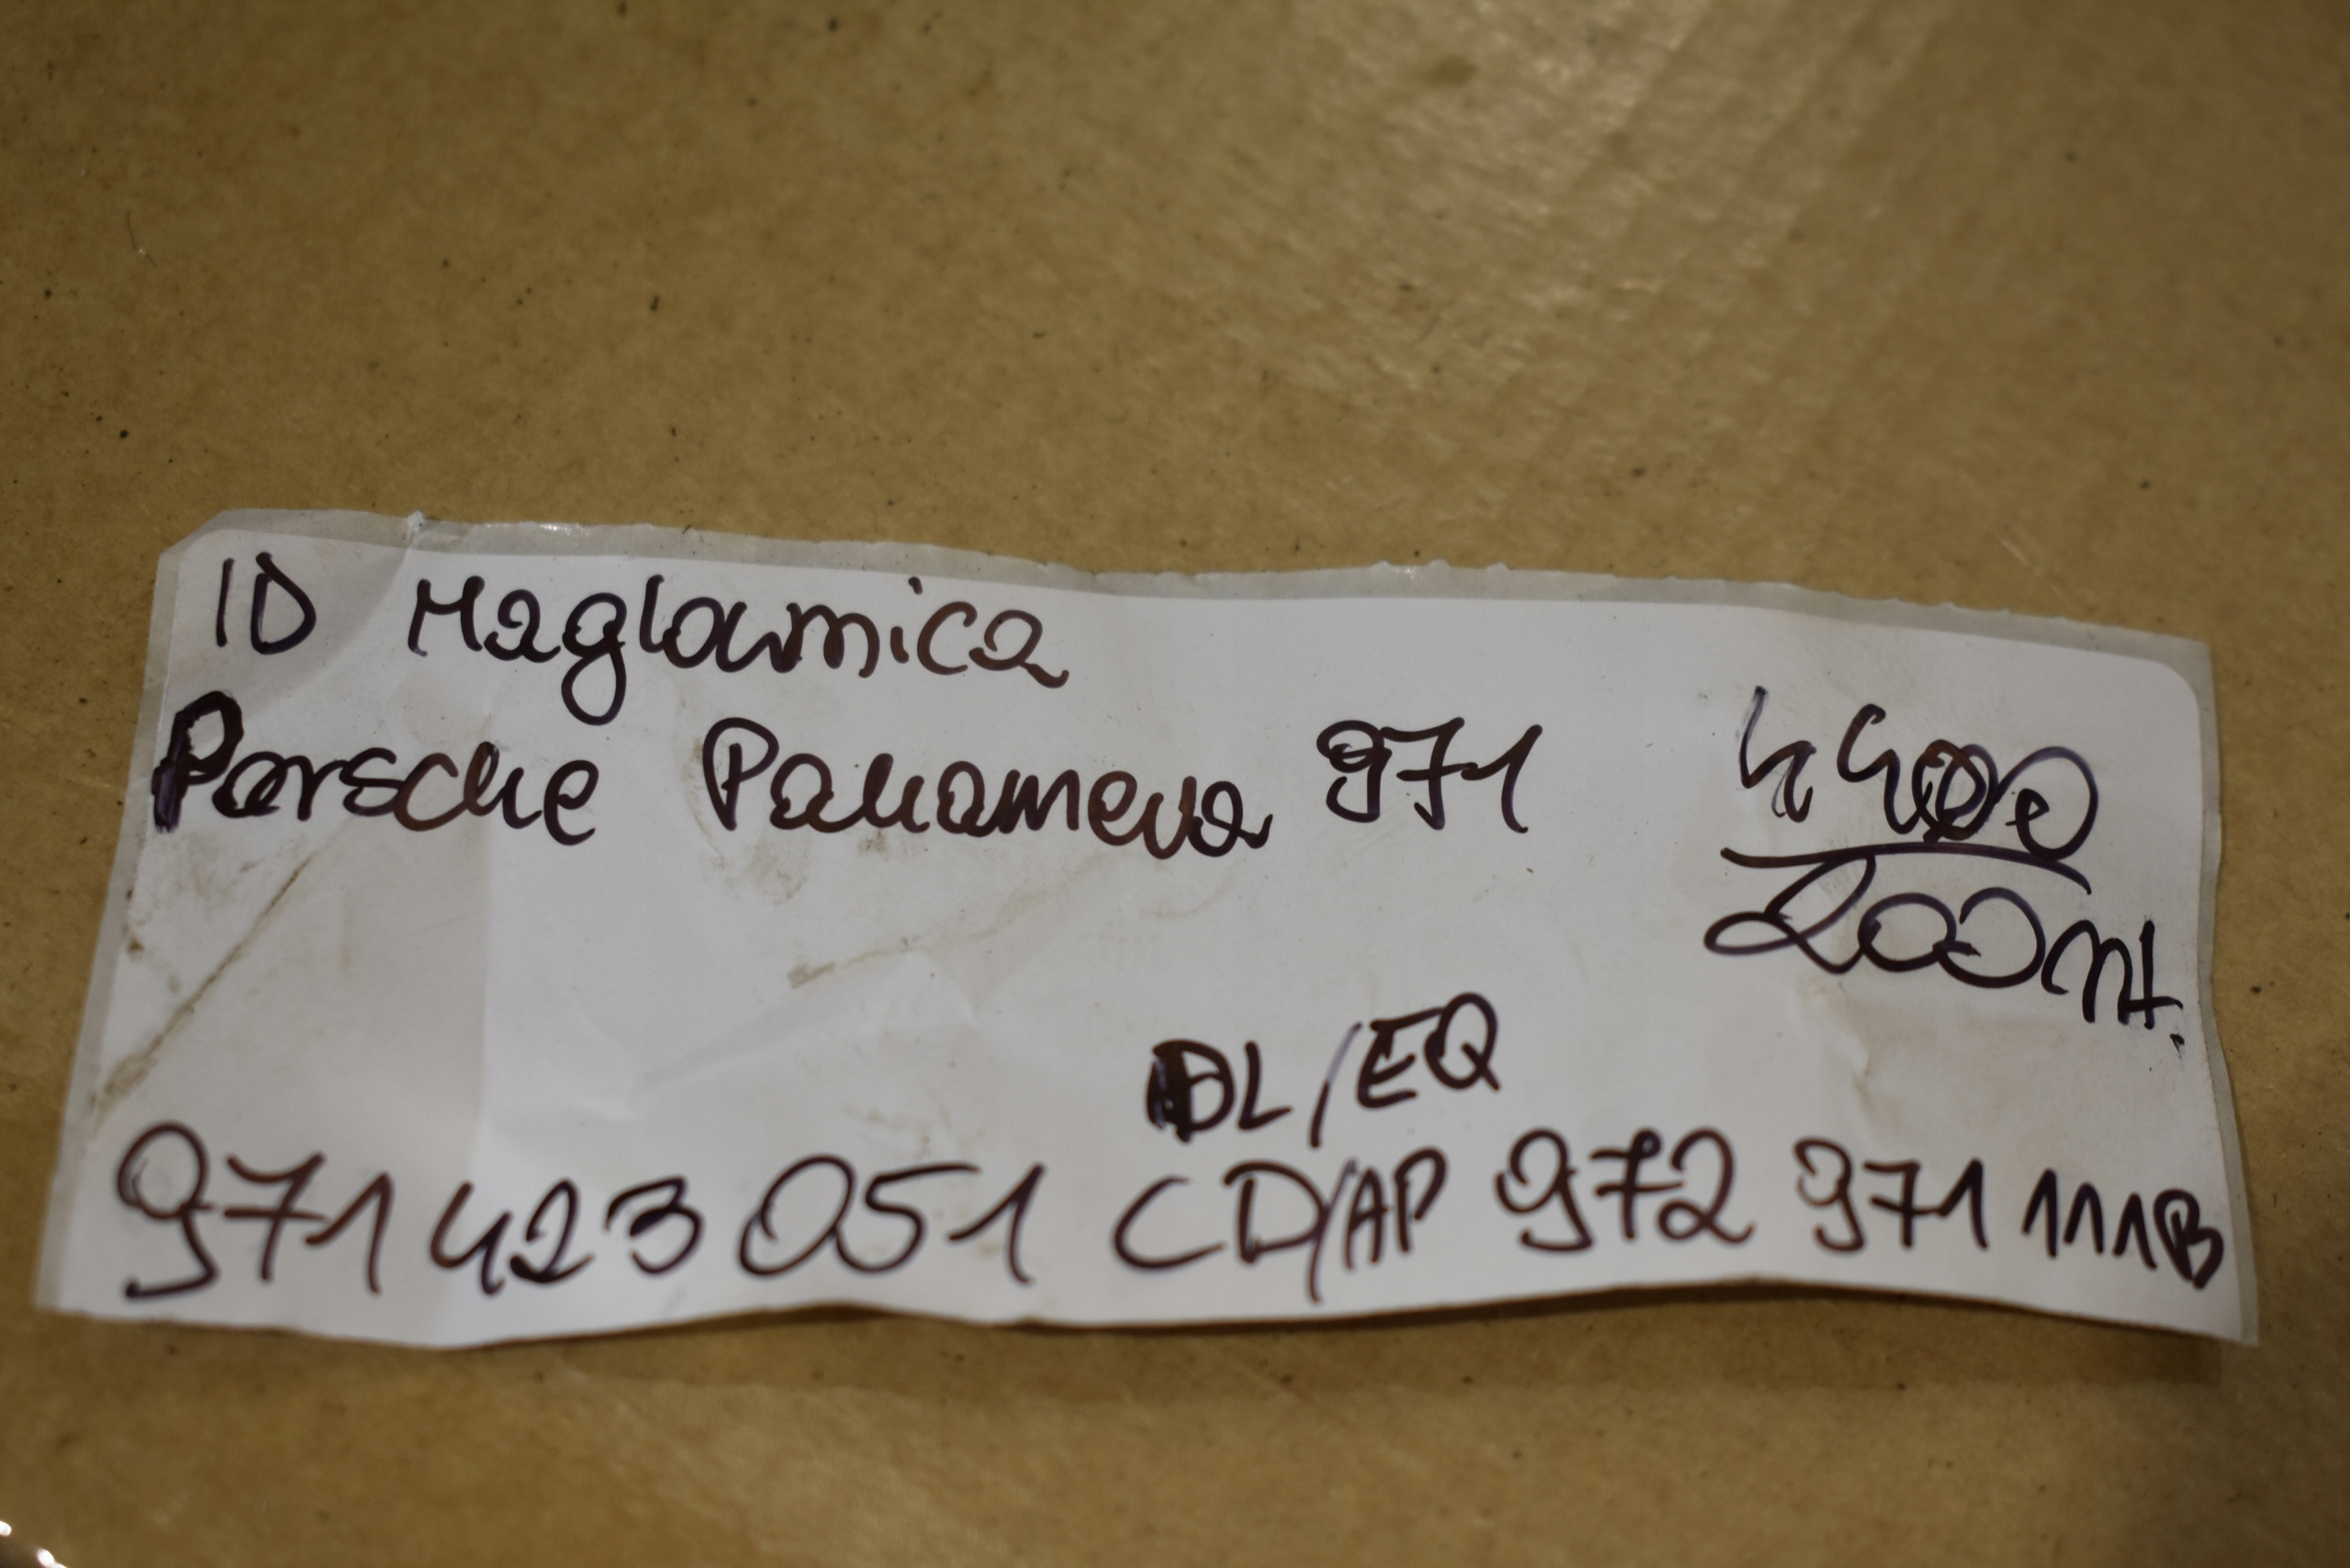 ID Maglownica
Porsche Panamera 971
200 nt.
DL/EQ
971 423 051 CD/AP 972 971 111B